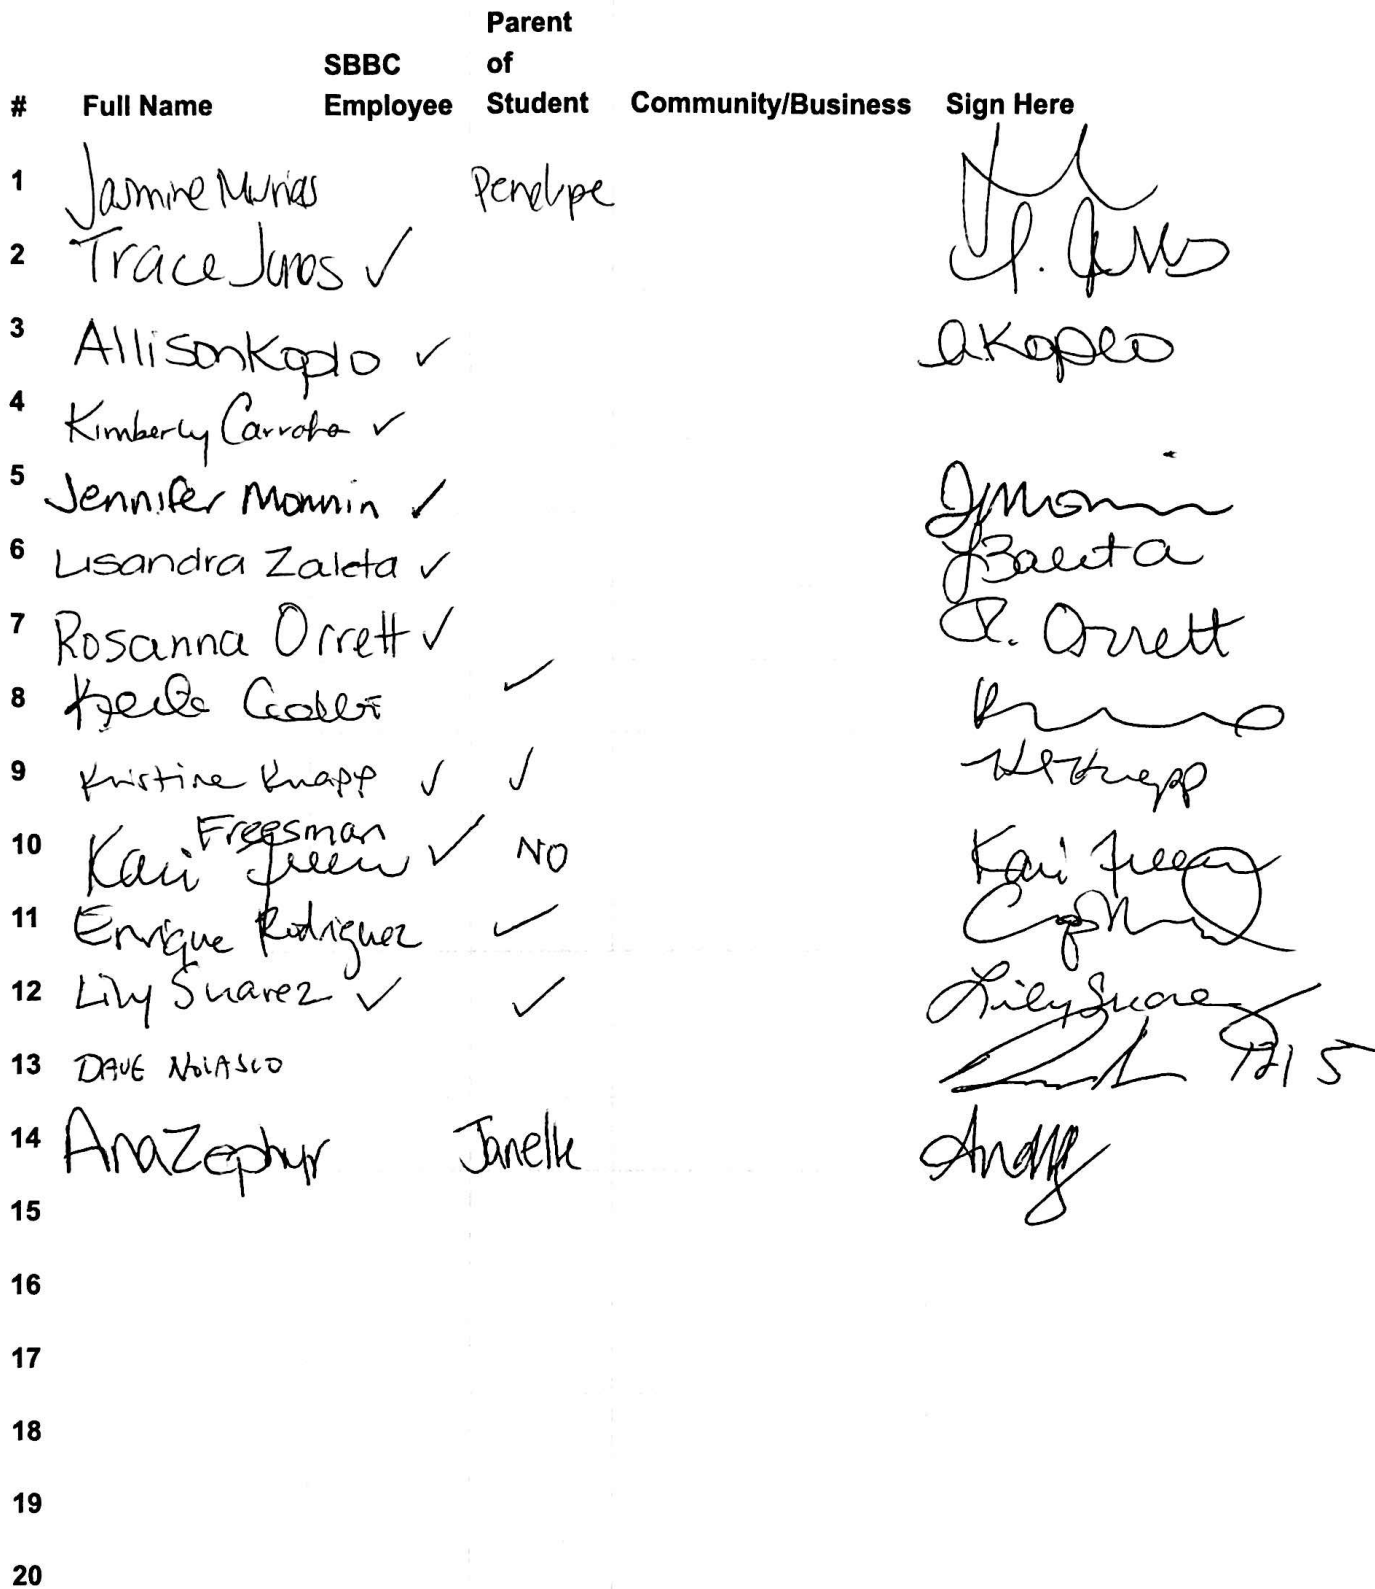 Parent
SBBC of
# Full Name Employee Student Community/Business Sign Here
1 Jasmine Murias Penelope
2 Trace Juros ✓ T. Juros
3 Allison Koplo ✓ A Koplo
4 Kimberly ✓
5 Jennifer Monnin ✓ J Monnin
6 Lisandra Zaleta ✓ L Zaleta
7 Rosanna Orrett ✓ R. Orrett
8 ✓
9 Kristine Knapp ✓ ✓ Knapp
Freesman
10 Kari ✓ NO Kari
11 Enrique Rodriguez ✓
12 Lily Suarez ✓ ✓ Lily Suarez
13 DAVE NOLASCO
14 Ana Zephyr Janelle
15
16
17
18
19
20